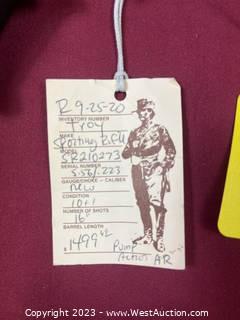 R 9-25-20
INVENTORY NUMBER
Troy
MAKE
Sporting Rifle
MODEL
SR210273
SERIAL NUMBER
5.56/.223
GAUGE/CHOKE - CALIBER
New
CONDITION
10+1
NUMBER OF SHOTS
16"
BARREL LENGTH
$ 1499
Pump
Action AR
Copyright 2023 - www.WestAuction.com